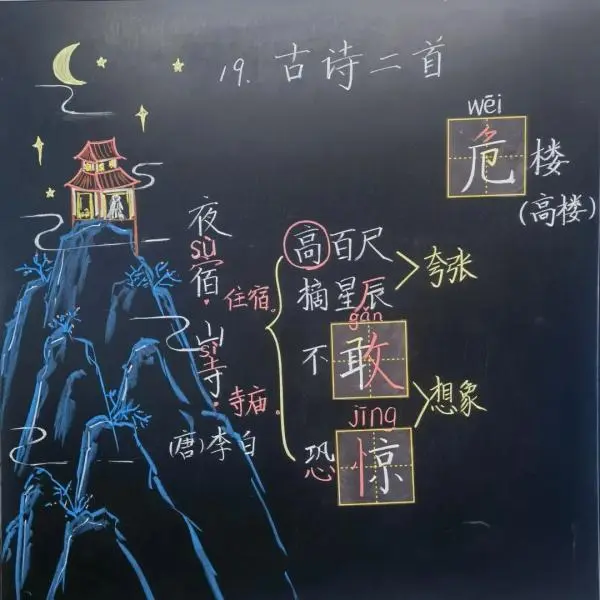 19. 古诗二首
wēi
危楼
(高楼)
夜
sù
宿
住宿。
山
sì
寺
寺庙。
(唐)李白
高百尺
摘星辰
夸张
gǎn
不敢
jīng
恐惊
想象